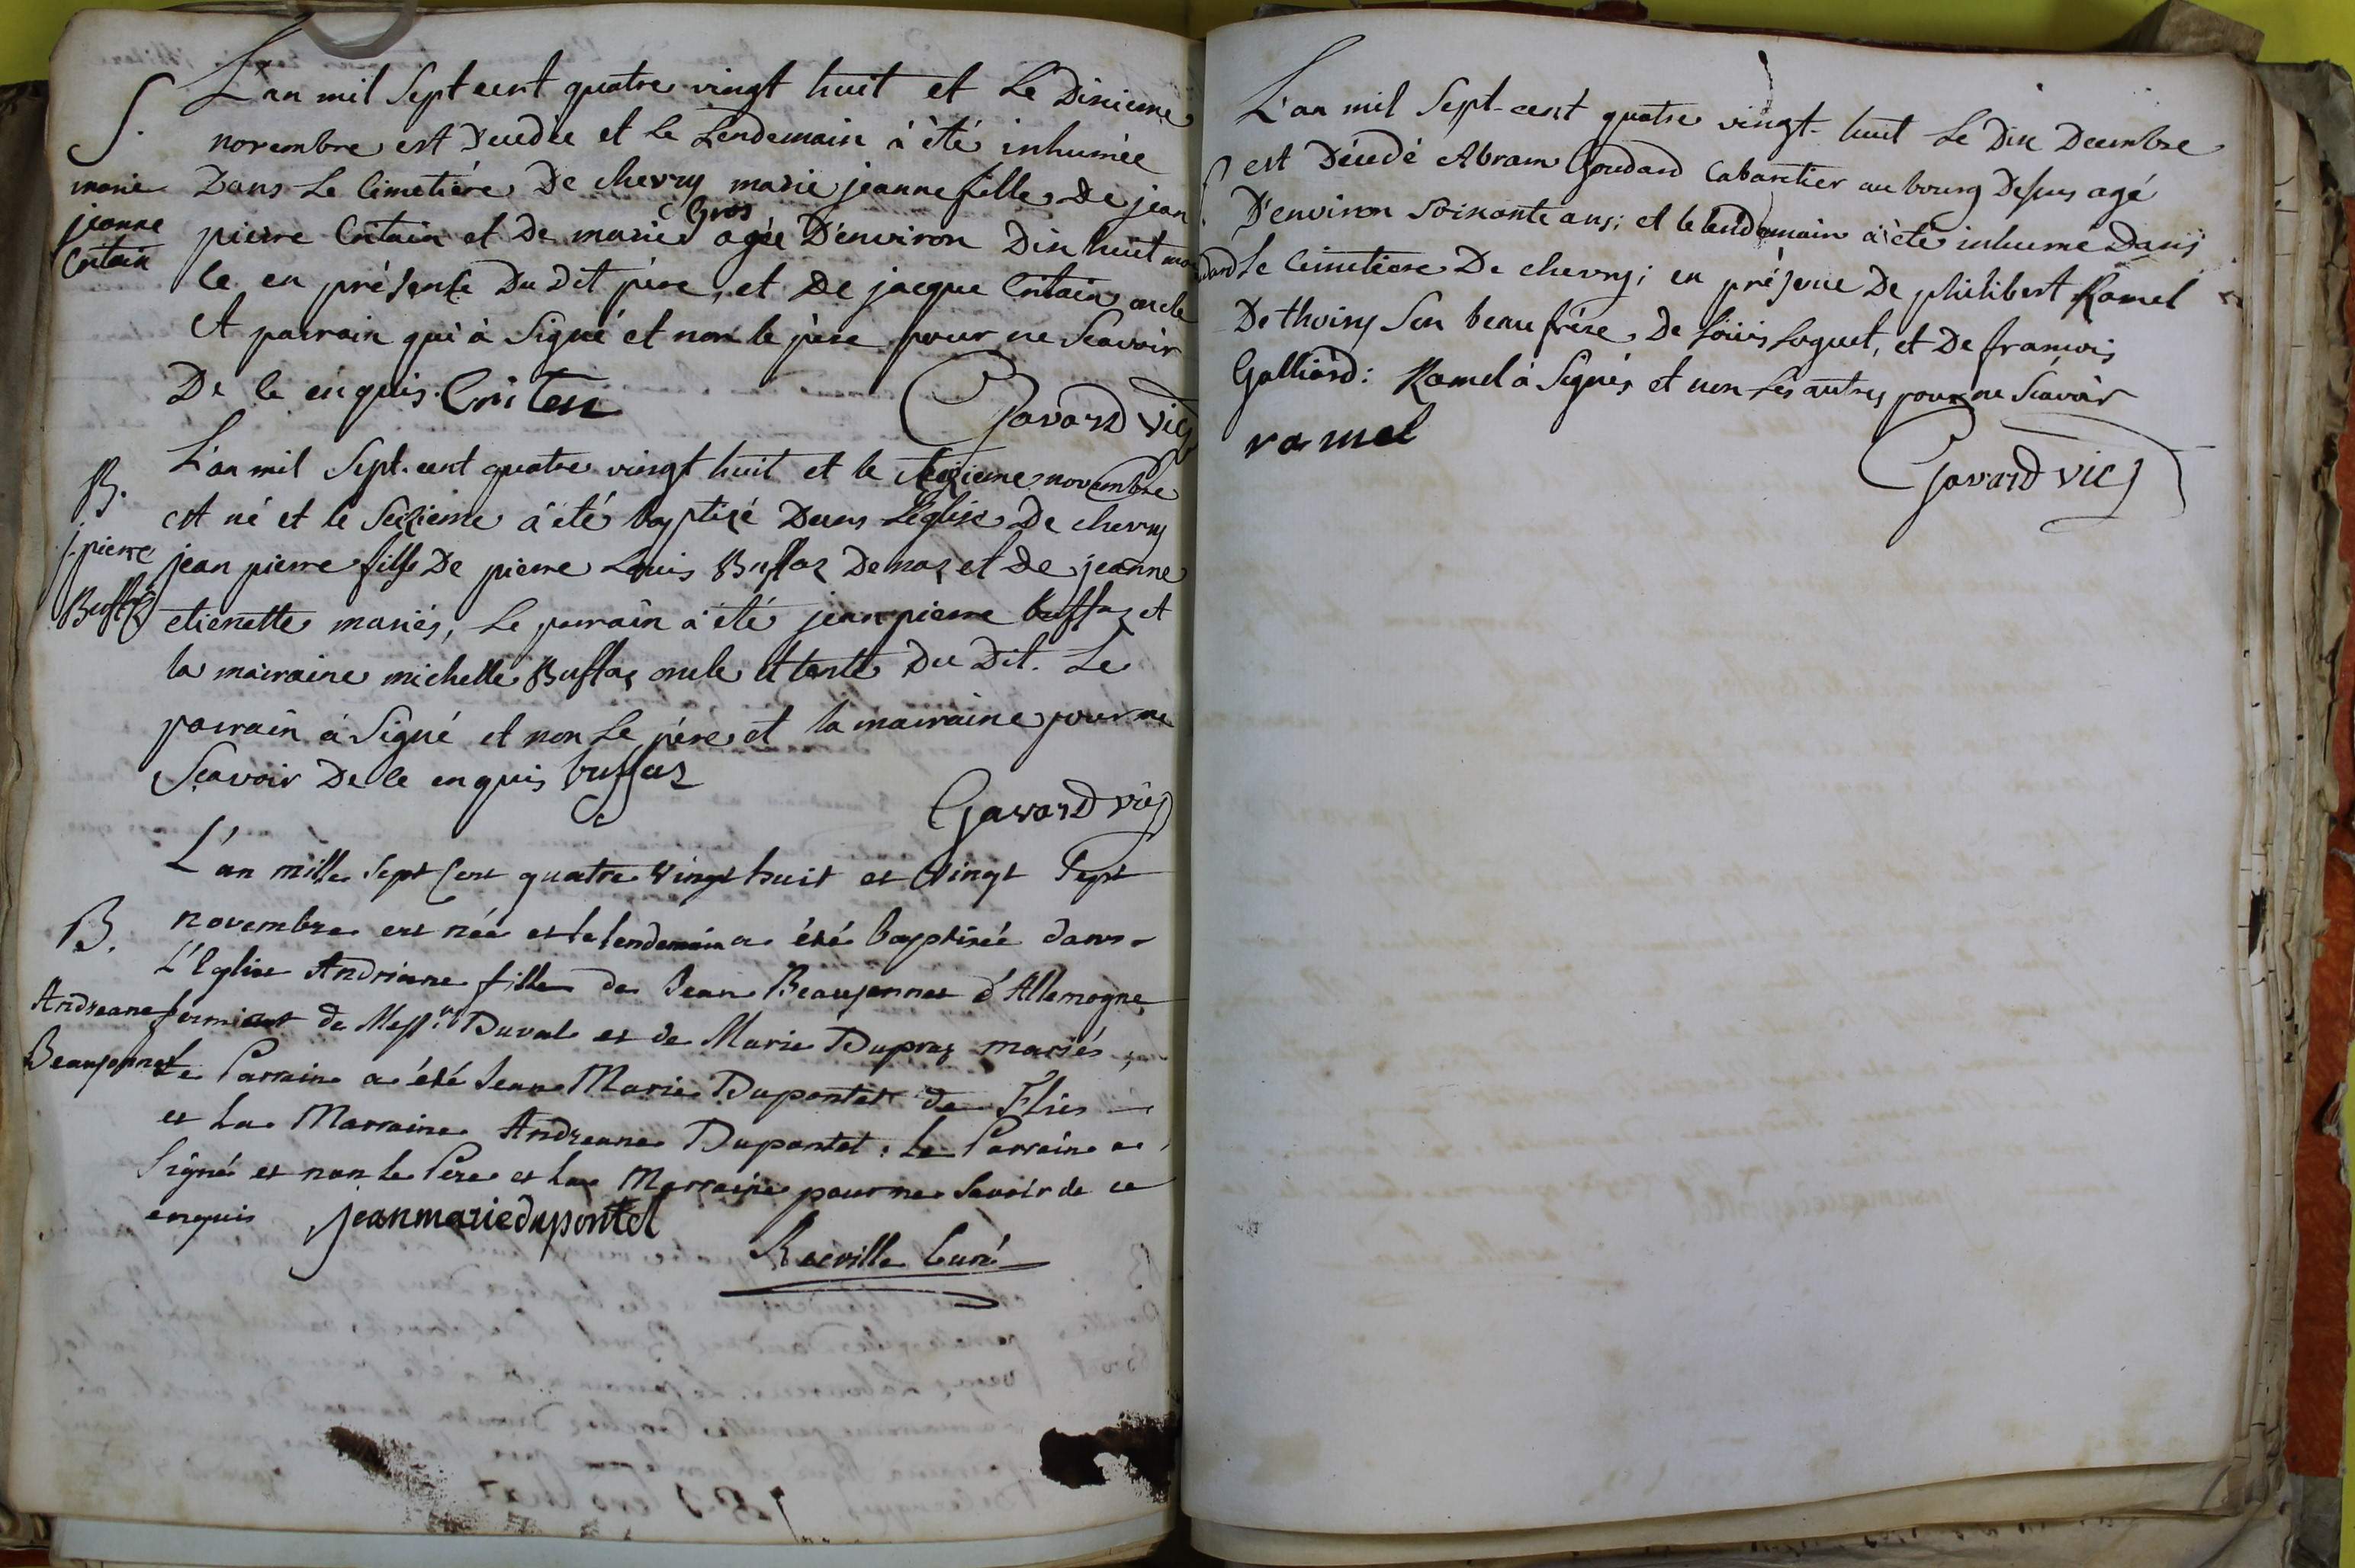 S.
marie
jeanne
Critain
L'an mil Sept cent quatre vingt huit et Le Dixieme
novembre est Decedée et le Lendemain à été inhumée
Dans Le Cimetiére De chevry marie jeanne fille De jean
pierre Critain et De marie Gros agée D'environ Dix huit mois
le en présence Du Dit pére, et De jacque Critain oncle
et parrain qui à Signé et non le pére pour ne Scavoir
De ce enquis. Criten
Gavard vic
B.
j. pierre
Buffaz
L'an mil Sept-cent quatre vingt huit et le novembre
est né et le Seizieme à été baptizé Dans L'église De chevry
jean pierre fils De pierre Louis Buffaz De naz et De jeanne
etienette mariés, Le parrain à été jean pierre buffaz et
la mairaine michelle Buffaz oncle et tante Du Dit. Le
parrain à Signé et non Le pére et la mairaine pour ne
Scavoir De ce enquis buffaz
Gavard vic
B.
Andreane
Beaujonnet
L'an mille Sept Cent quatre vingt huit et vingt Sept
novembre est née et le lendemain a été baptisée dans
L'Eglise Andriane fille de Jean Beaujonnet d'Allemogne
fermier de Messrs Duval et de Marie Dupraz mariés,
Le Parrain a été Jean Marie Dupontet de Flies
et La Marraine Andreane Dupontet. Le Parrain a
Signé et non le Pere et la Marraine pour ne Savoir de ce
enquis jeanmariedupontet
Curé
L'an mil Sept-cent quatre vingt-huit Le Dix Decembre
est Décedé Abram Goudard Cabaretier au bourg Desus agé
D'environ Soixante ans; et le lendemain à été inhumé Dans
Le Cimetiere De chevry; en présence De philibert Ramel
De thoiry Son beau frére, De Louis Loguet, et De francois
Galliard: Ramel à Signés et non Les autres pour ne Scavoir
ramel
Gavard vic